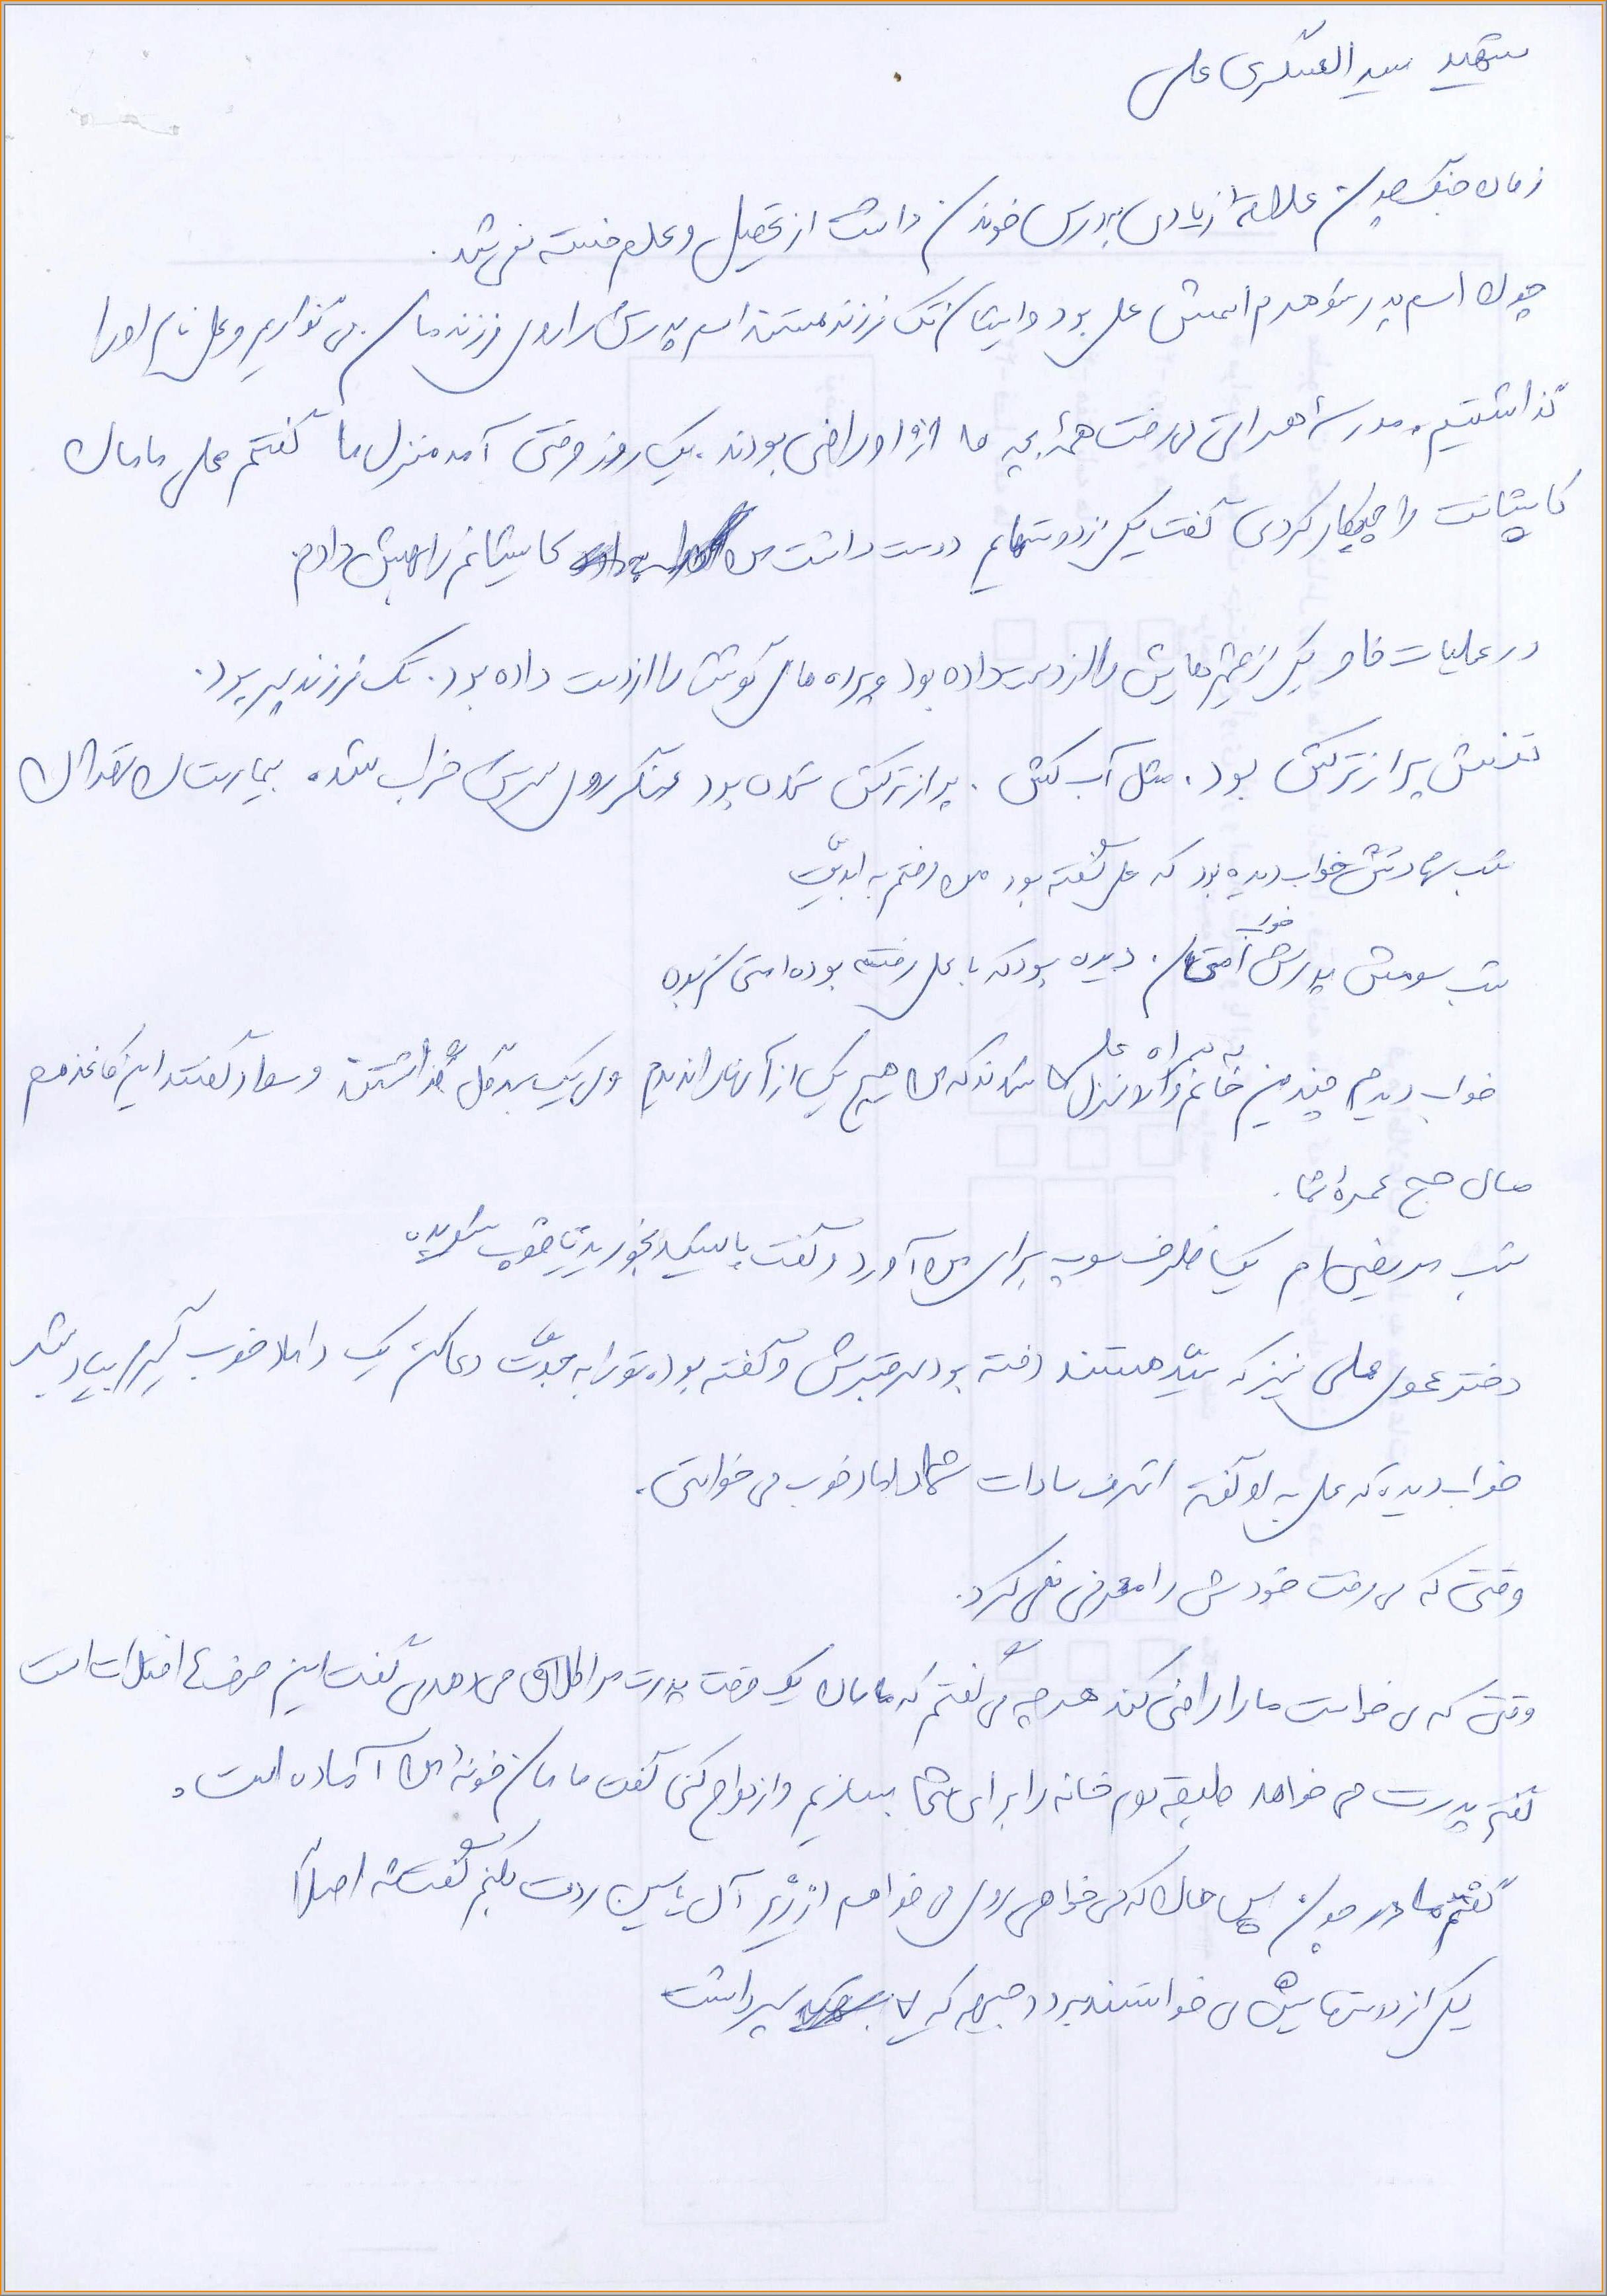 شهید سید العسکری علی
زمان جنگ بود. علاقهٔ زیادی به درس خوندن داشت از تحصیل و علم خسته نمی‌شد.
چون اسم پدر شوهرم اسمش علی بود و ایشان تک فرزند هستند اسم پدرش را روی فرزندمان می‌گذاریم و علی نام او را
گذاشتیم. مدرسه هدایتی می‌رفت همهٔ بچه ها از او راضی بودند. یک روز وقتی آمد منزل ما گفتم علی مامان
کاپشانت را چیکار کردی گفت یکی از دوستهایم دوست داشت من کاپشانم را بهش دادم.
در عملیات فاو یکی از چشم‌هایش را از دست داده بود و پرده های گوشش را از دست داده بود. تک فرزند پسر بود.
تنش پر از ترکش بود. مثل آب کش. پر از ترکش شده بود سنگر روی سرش خراب شده. بیمارستان
شب شهادتش خواب دیده بود که علی گفته بود من رفتم به ابدیّت
شب سومش پدرش خواب امتحان. دیده بود که با علی رفته بوده امتحان بده
خواب دیدم چندین خانم و آقا به همراه علی منزل ما شدند که من هیچ یک از آنها را ندیدم ولی یک سبد گل گذاشتند و گفتند این کاغذ هم
مال حج عمره شما.
شب مریضی ام یک ظرف سوپ برای من آورد و گفت بخورید تا خوب شوید.
دختر عموی علی نیز که سیّد هستند رفته بود سر قبرش و گفته بود، تو را به جدّت دعا کن یک داماد خوب گیرم بیاد بشد
خواب دیده که علی به او گفته اشرف سادات شما داماد خوب می خواستی.
وقتی که می رفت خودش را معرفی نمی کرد.
وقتی که می خواست ما را راضی کند هر چه می گفتم که مامان یک وقت پدرت مرا طلاق می دهد می گفت این حرف‌ها است
گفتم پدرت می خواهد طبقه دوم خانه را برای شما بسازیم و ازدواج کنی گفت مامان خونهٔ من آماده است.
گفتم مادر جون پس حالا که می خواهی روی می خواهم از زیر آل یاسین ردت بکنم گفت نه اصلاً
یکی از دوستهایش می خواستند برود جبهه که پسر داشت